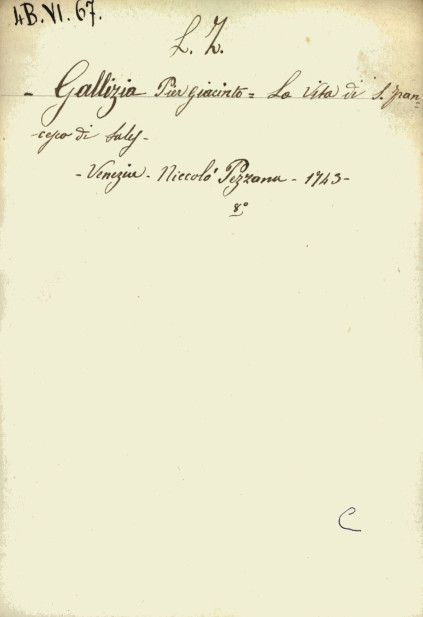 4B.VI.67.
L. Z.
- Gallizia Pier giacinto = La Vita di S. Fran=
cesco di Sales -
- Venezia - Niccolò Pezzana - 1743 -
8.°
C